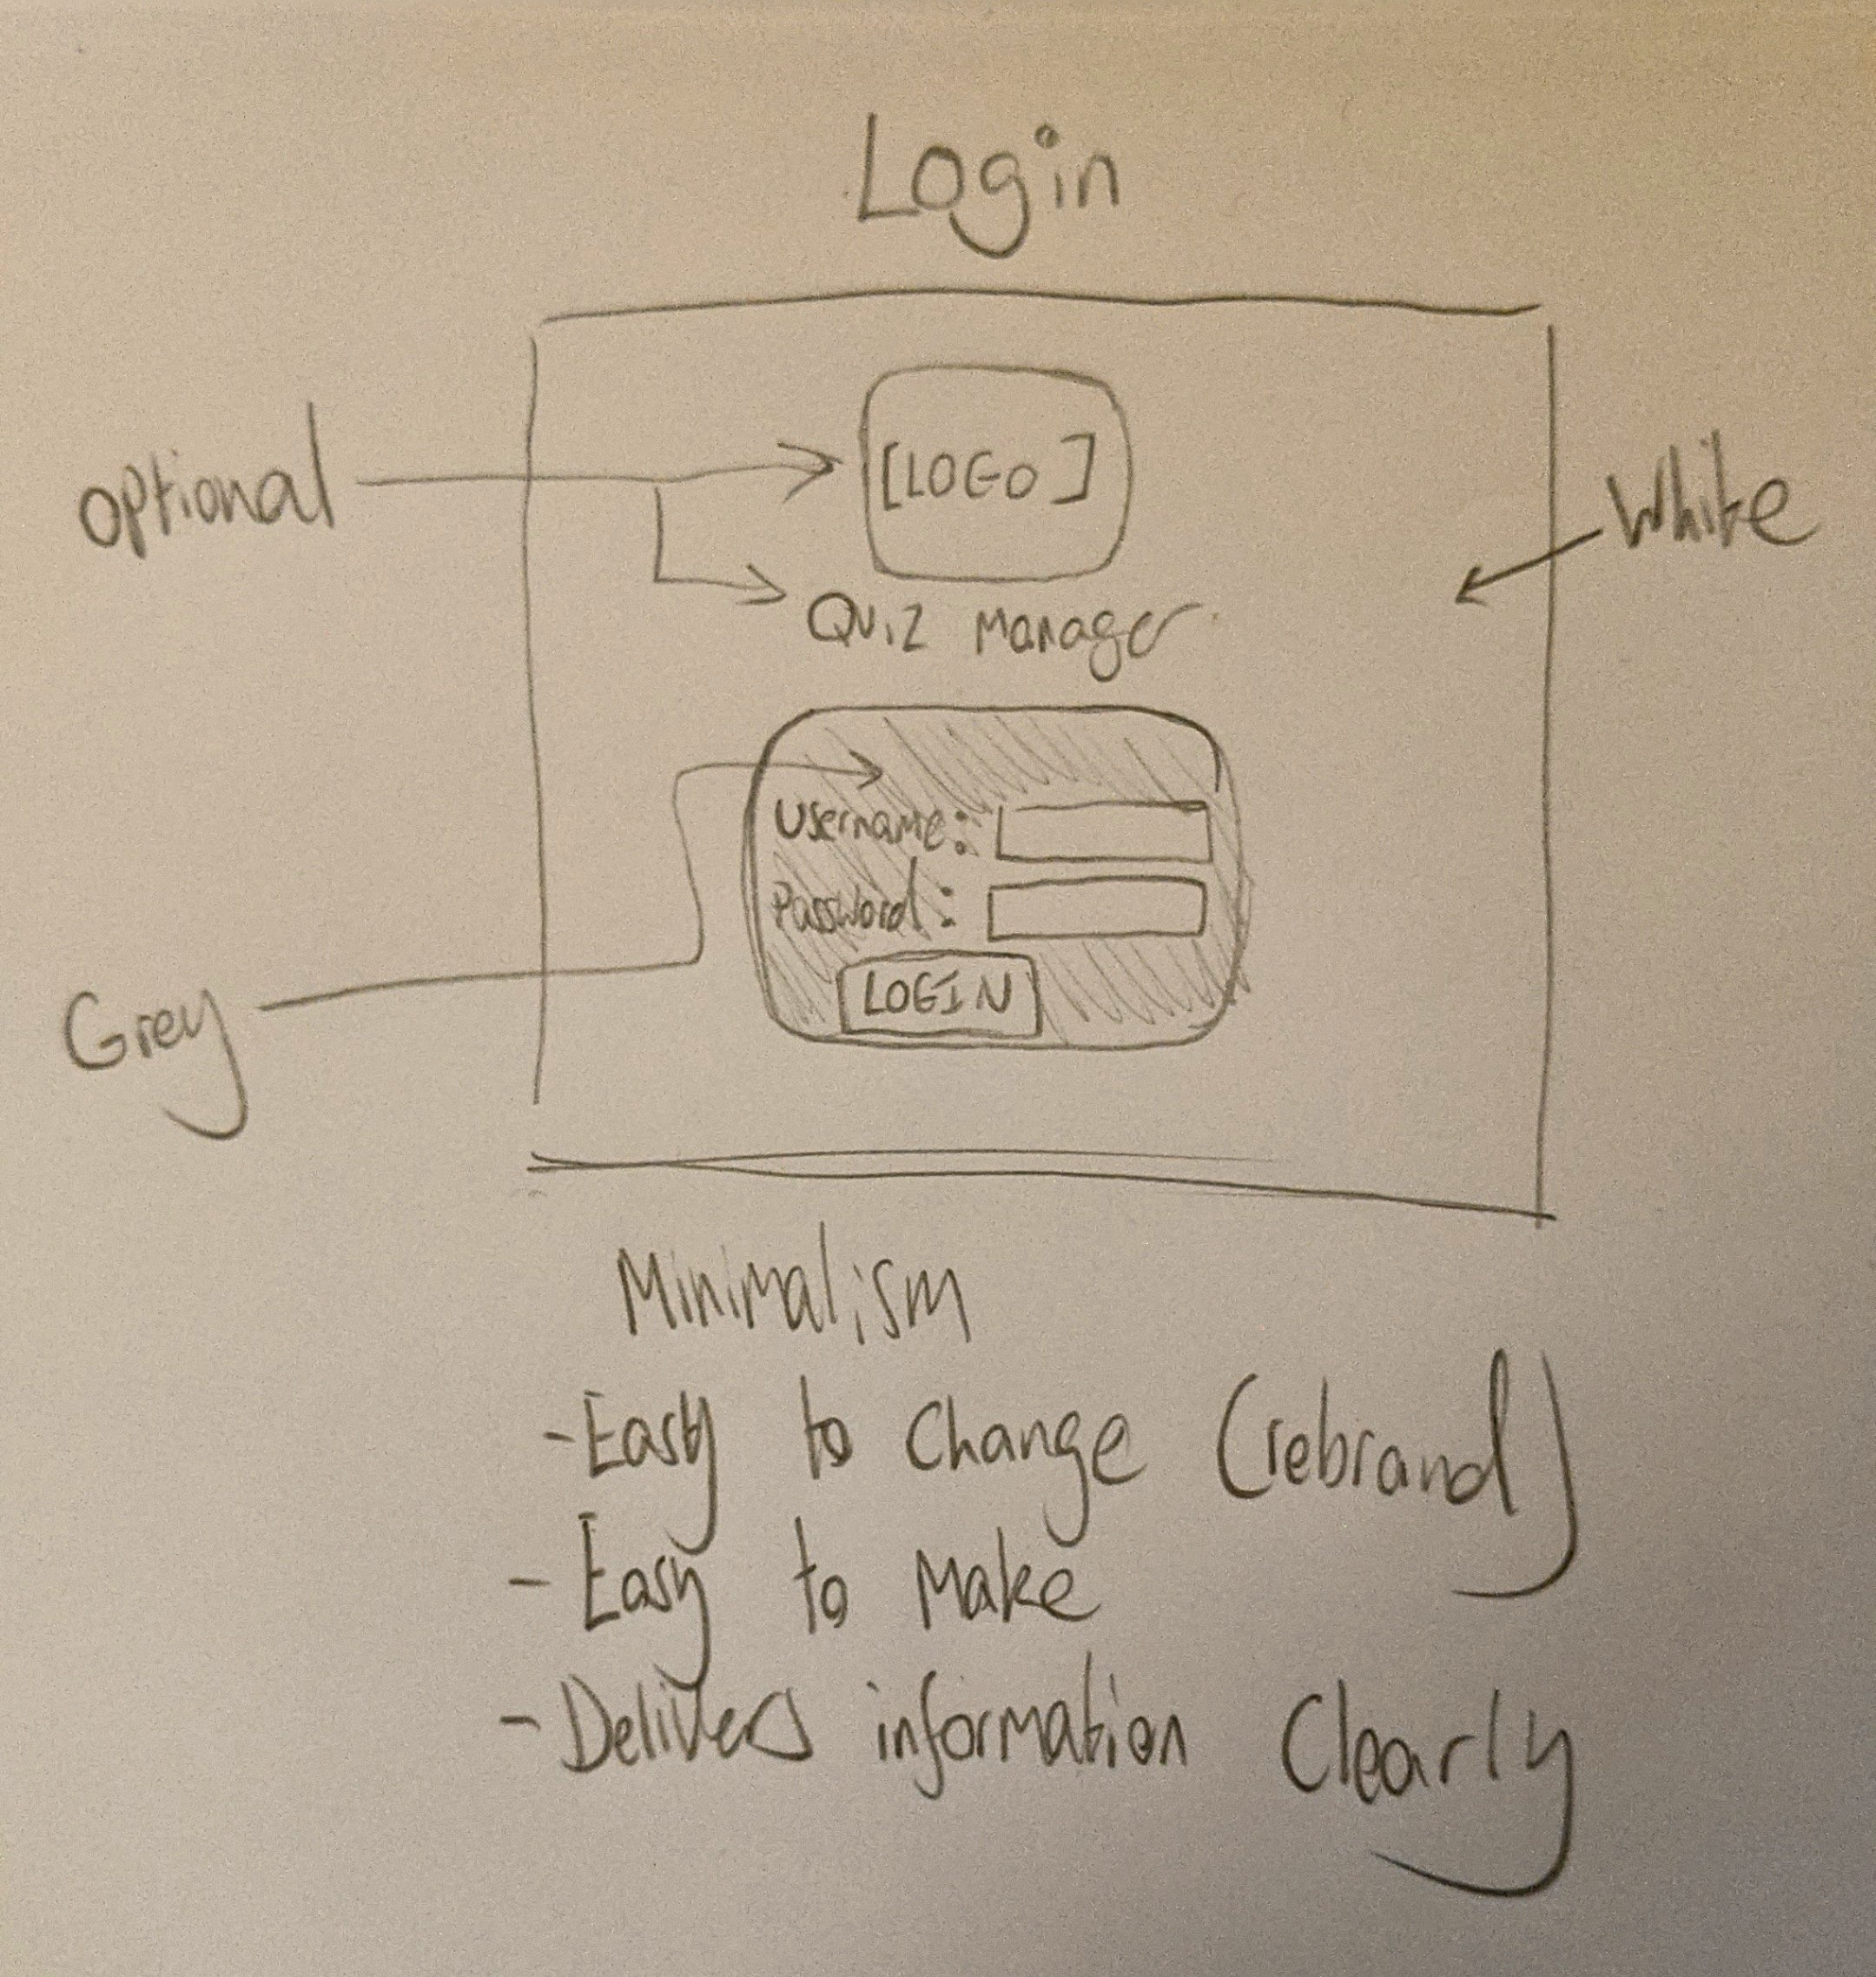 Login
optional
[LOGO]
White
Quiz Manager
Username:
Password:
LOGIN
Grey
Minimalism
- Easy to change (rebrand)
- Easy to make
- Delivers information clearly